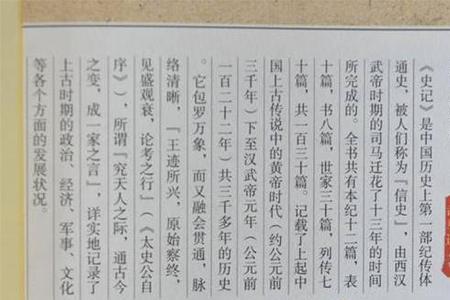 《史记》是中国历史上第一部纪传体
通史，被人们称为『信史』，由西汉
武帝时期的司马迁花了十三年的时间
所完成的。全书共有本纪十二篇，表
十篇，书八篇，世家三十篇，列传七
十篇，共一百三十篇。记载了上起中
国上古传说中的黄帝时代（约公元前
三千年）下至汉武帝元年（公元前
一百二十二年）共三千多年的历史
。它包罗万象，而又融会贯通，脉
络清晰，『王迹所兴，原始察终，
见盛观衰，论考之行』（《太史公自
序》），所谓『究天人之际，通古今
之变，成一家之言』，详实地记录了
上古时期的政治、经济、军事、文化
等各个方面的发展状况。